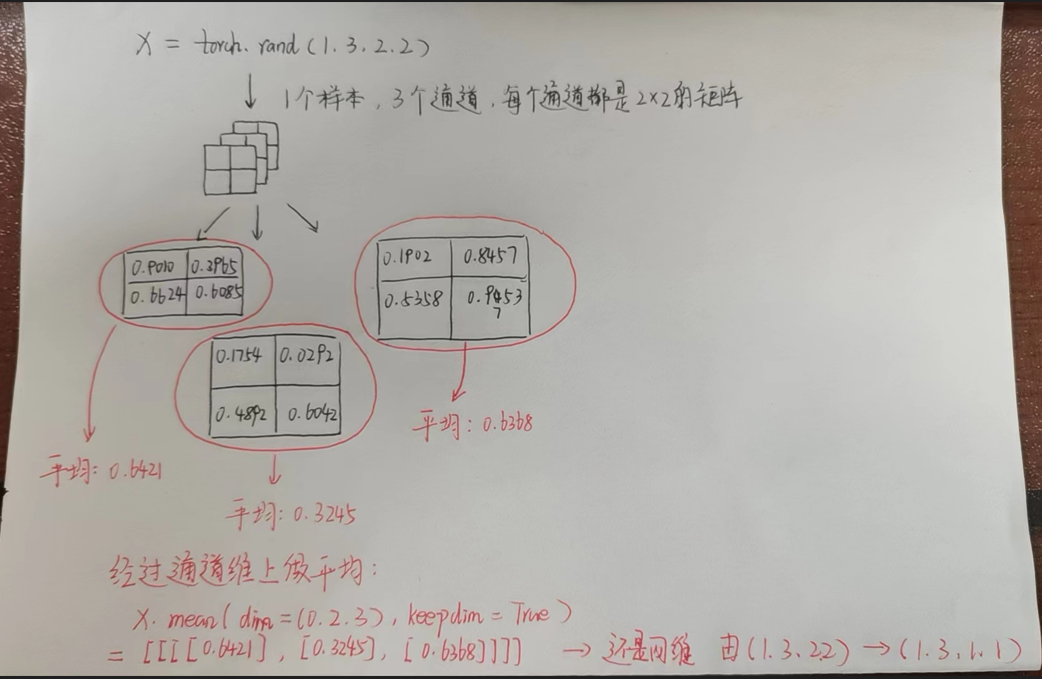 X = torch.rand(1.3.2.2)
1个样本，3个通道，每个通道都是2×2的矩阵
0.9010 0.3965
0.6624 0.6085
0.1902 0.8457
0.5358 0.9453
7
0.1754 0.0292
0.4892 0.6042
平均: 0.6368
平均: 0.6421
平均: 0.3245
经过通道维上做平均:
X.mean(dim=(0.2.3), keepdim=True)
= [[[[0.6421], [0.3245], [0.6368]]]] → 还是四维 由(1.3.2.2) → (1.3.1.1)